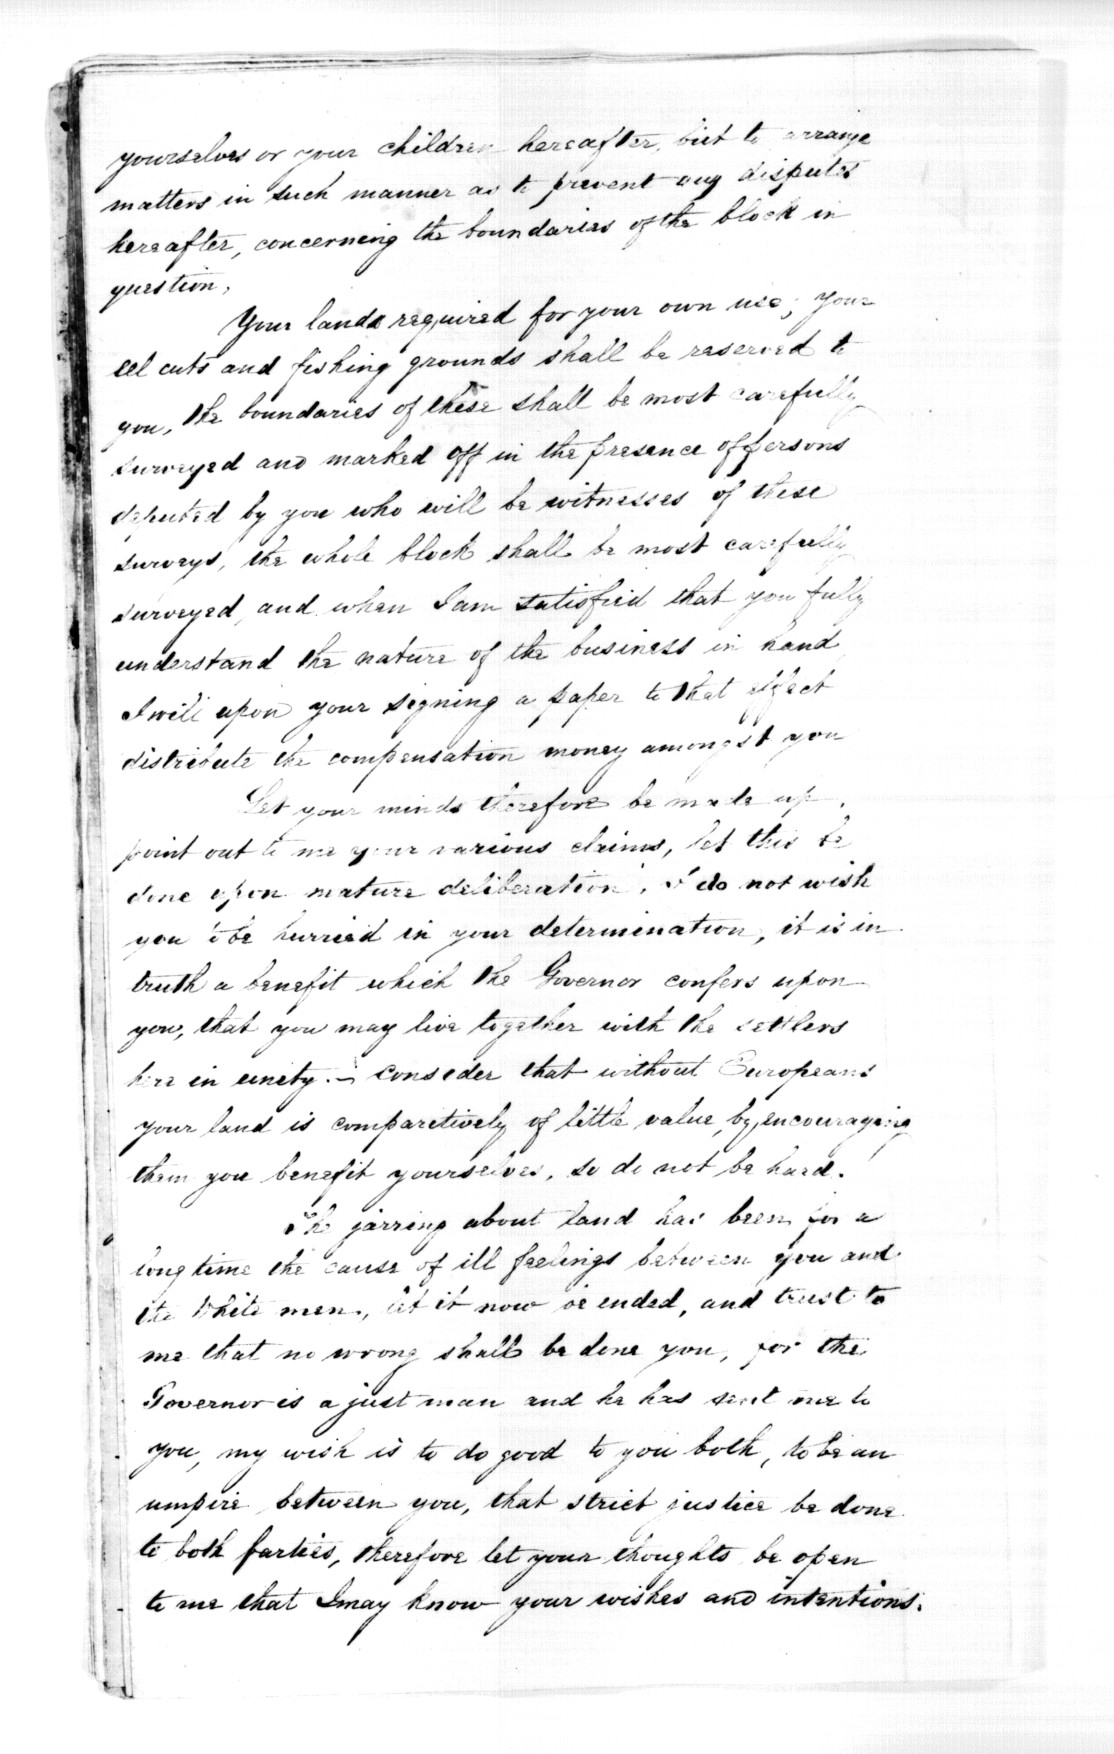 yourselves or your children hereafter, but to arrange
matters in such manner as to prevent any disputes
hereafter, concerning the boundaries of the block in
question,
Your lands required for your own use, your
eel cuts and fishing grounds shall be reserved to
you, the boundaries of these shall be most carefully
surveyed and marked off in the presence of persons
deputed by you who will be witnesses of these
surveys, the whole block shall be most carefully
surveyed, and when I am satisfied that you fully
understand the nature of the business in hand
I will upon your signing a paper to that effect
distribute the compensation money amongst you
Let your minds therefore be made up,
point out to me your various claims, let this be
done upon mature deliberation, I do not wish
you to be hurried in your determination, it is in
truth a benefit which the Governor confers upon
you, that you may live together with the settlers
here in unity. – consider that without Europeans
your land is comparetively of little value, by encourageing
them you benefit yourselves, so do not be hard!
The jarring about land has been for a
long time the cause of ill feelings between you and
the White men, let it now be ended, and trust to
me that no wrong shall be done you, for the
Governor is a just man and he has sent me to
you, my wish is to do good to you both, to be an
umpire between you, that strict justice be done
to both parties, therefore let your thoughts be open
to me that I may know your wishes and intentions.